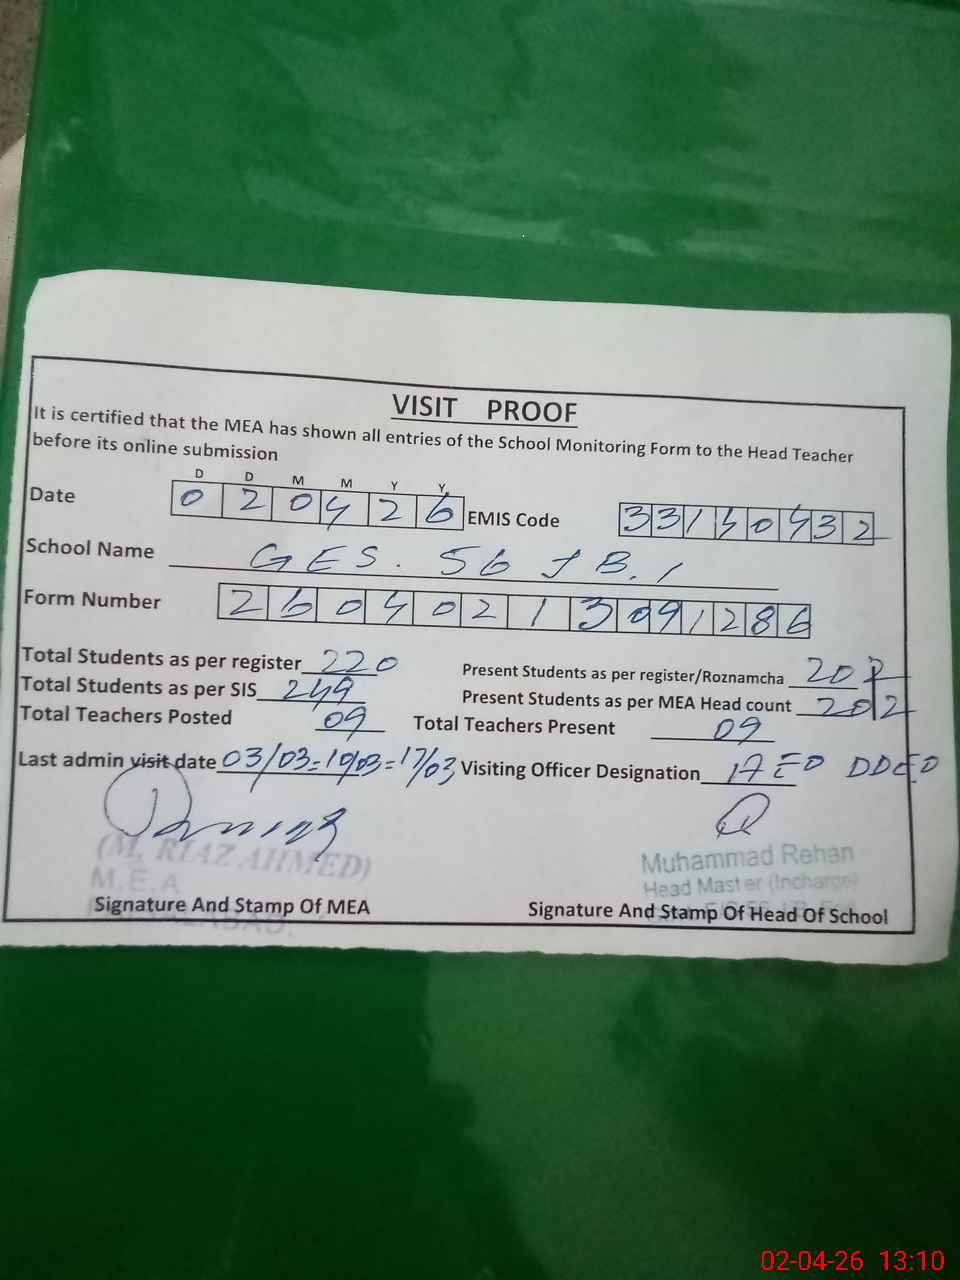 VISIT PROOF
It is certified that the MEA has shown all entries of the School Monitoring Form to the Head Teacher
before its online submission
D D M M Y Y
Date 020426 EMIS Code 33130432
School Name GES. 56 JB.1
Form Number 26040213091286
Total Students as per register 220 Present Students as per register/Roznamcha 202
Total Students as per SIS 249 Present Students as per MEA Head count 202
Total Teachers Posted 09 Total Teachers Present 09
Last admin visit date 03/03=10/03=17/03 Visiting Officer Designation DDEO
(M. RIAZ AHMED) Muhammad Rehan
M.E.A Head Master (Incharge)
Signature And Stamp Of MEA Signature And Stamp Of Head Of School
02-04-26 13:10